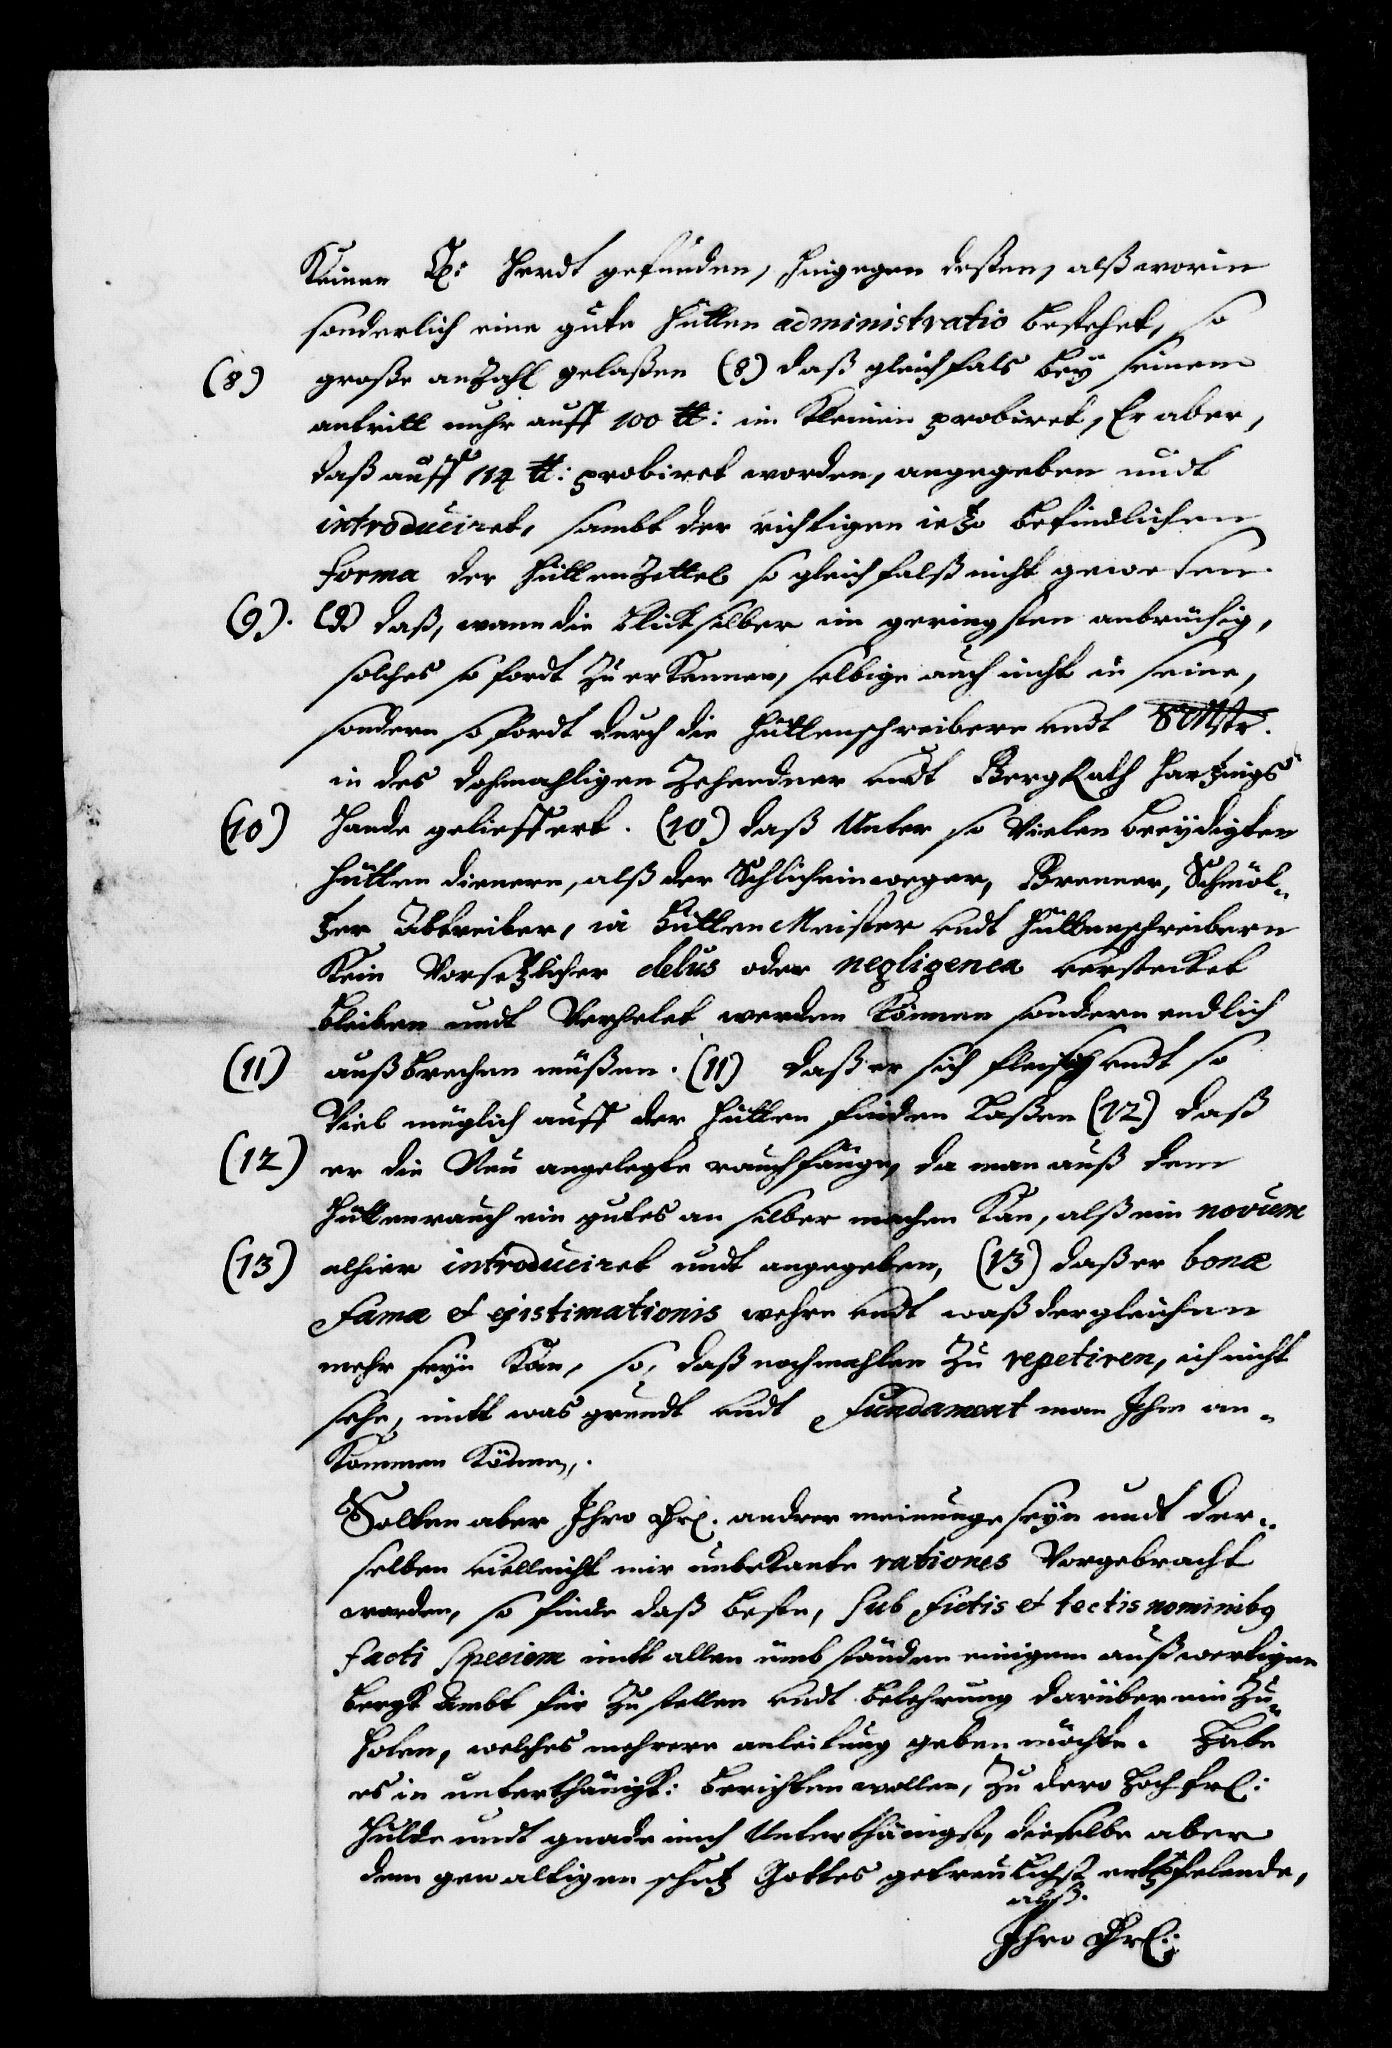 Keinen Herdt gefunden, hingegen deßen, alß worin
sonderlich eine gute Hütten administratio bestehet, so
(8) große anzahl gelaßen (8) daß gleichfals bey seinem
antritt nuhr auff 100 ℔: im Kleinen probiret, Er aber,
daß auff 114 ℔: probiret worden, angegeben undt
introduciret, sambt der richtigen ietzo befindlichen
forma der Hüttenzettel so gleichfalß nicht gewesen.
(9). (9) daß, wann die Blicksilber im geringsten anbrüchig,
solches so fordt zu erkennen, selbige auch nicht in seine,
sondern so fordt durch die Hüttenschreibere undt
in des dahmahligen Zehendner undt BergRath Hartzings
(10) Hande gelieffert. (10) daß Unter so Vielen beeydigten
Hütten dienern, alß der Schlicheinweger, Brenner, Schmöl-
tzer Abtreiber, in HüttenMeister undt Hüttenschreibern
Kein Vorsetzlicher dolus oder negligenea verstecket
bleiben undt Verhelet werden können sondern endlich
(11) außbrechen müßen. (11) daß er sich fleisig undt so
Viel müglich auff der Hütten finden laßen (12) daß
(12) er die Neu angelegte rauchfänge, da man auß dem
Hüttenrauch ein gutes an silber machen kan, alß ein novum
(13) alhier introduciret undt angegeben, (13) daß er bonæ
famæ et existimationis wehre undt waß dergleichen
mehr seyn kan, so, daß nochmahlen zu repetiren, ich nicht
sehe, mitt was grundt undt fundament man Ihm an-
kommen könne.
Solten aber Ihro Drl. andrer meinunge seyn undt der-
selben vielleicht mir unbekante rationes Vorgebracht
worden, so finde daß beste, sub fictis et tectis nominibq
facti speciem mitt allen umbständen einigem außwertigen
bergk Ambt für zu stellen undt belehrung darüber ein zu
holen, welches mehrere anleitung geben möchte. Habe
es in unterthänigk: berichten wollen, zu dero Hochfrl:
Hulde undt gnade mich Unterthänigst, dieselbe aber
dem gewaltigen schutz Gottes getreulichst entpfelende,
alß.
Ihro Drl: